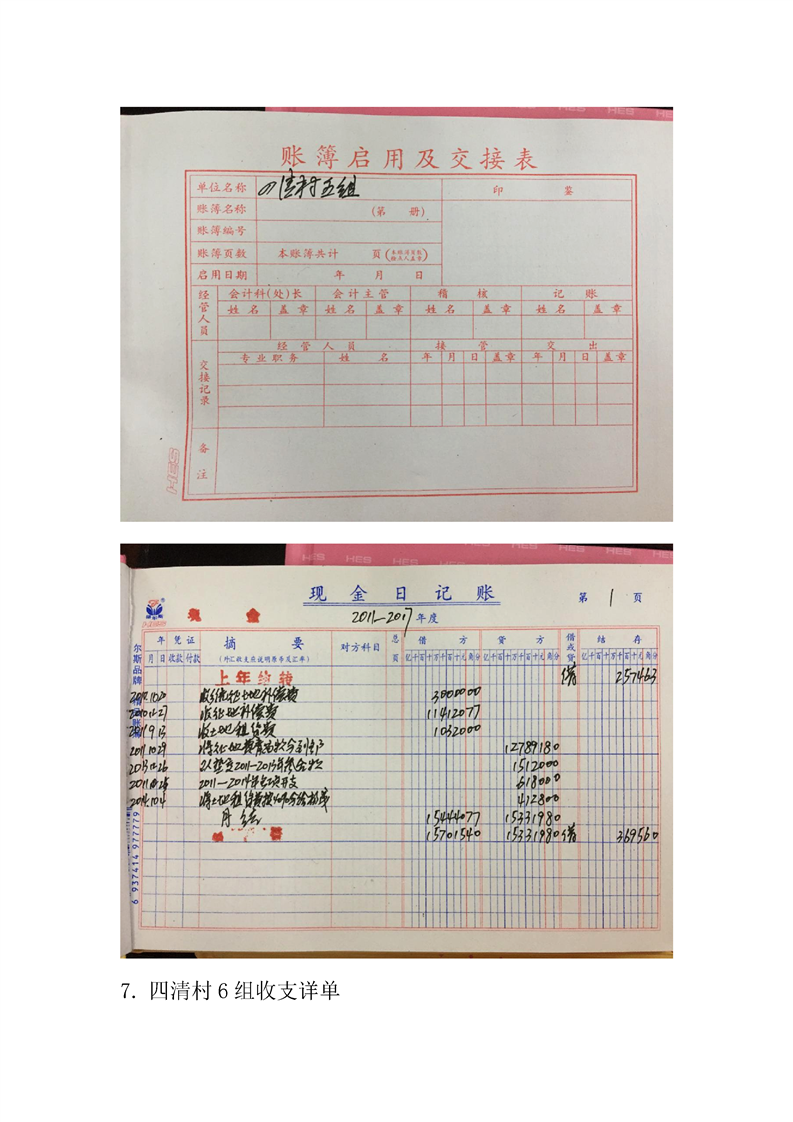 HES HES HES
账簿启用及交接表
单位名称 四清村五组 印 鉴
账簿名称 (第 册)
账簿编号
账簿页数 本账簿共计 页
启用日期 年 月 日
经管人员 会计科(处)长 会计主管 稽核 记账
姓名 盖章 姓名 盖章 姓名 盖章 姓名 盖章
交接记录 经管人员 接管 交出
专业职务 姓名 年 月 日 盖章 年 月 日 盖章
备注
HES HES HES HES HES HES HES
现金日记账 第 1 页
现金 2011—2017年度
尔斯品牌
年 凭证 摘要 对方科目 总页 借方 贷方 借或贷 结存
月 日 收款 付款 (外汇收支应说明原币及汇率) 亿千百十万千百十元角分 亿千百十万千百十元角分 亿千百十万千百十元角分
上年结转 借 257463
3000000
收征地补偿费 11412077
2011 9 13 收土地租赁费 1032000
2011 10 29 12789180
2011—2015年 1512000
2011—2014年 开支 618000
412800
月结 15444077 15331980
15701540 15331980 借 369560
6 937414 977779
7. 四清村 6 组收支详单